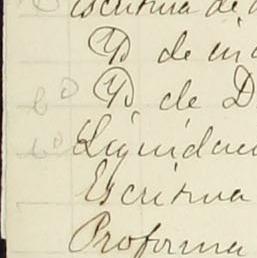 escritura de
Yd de in
6º Yd de D
6º Liquidaci
Escritura
Proforma